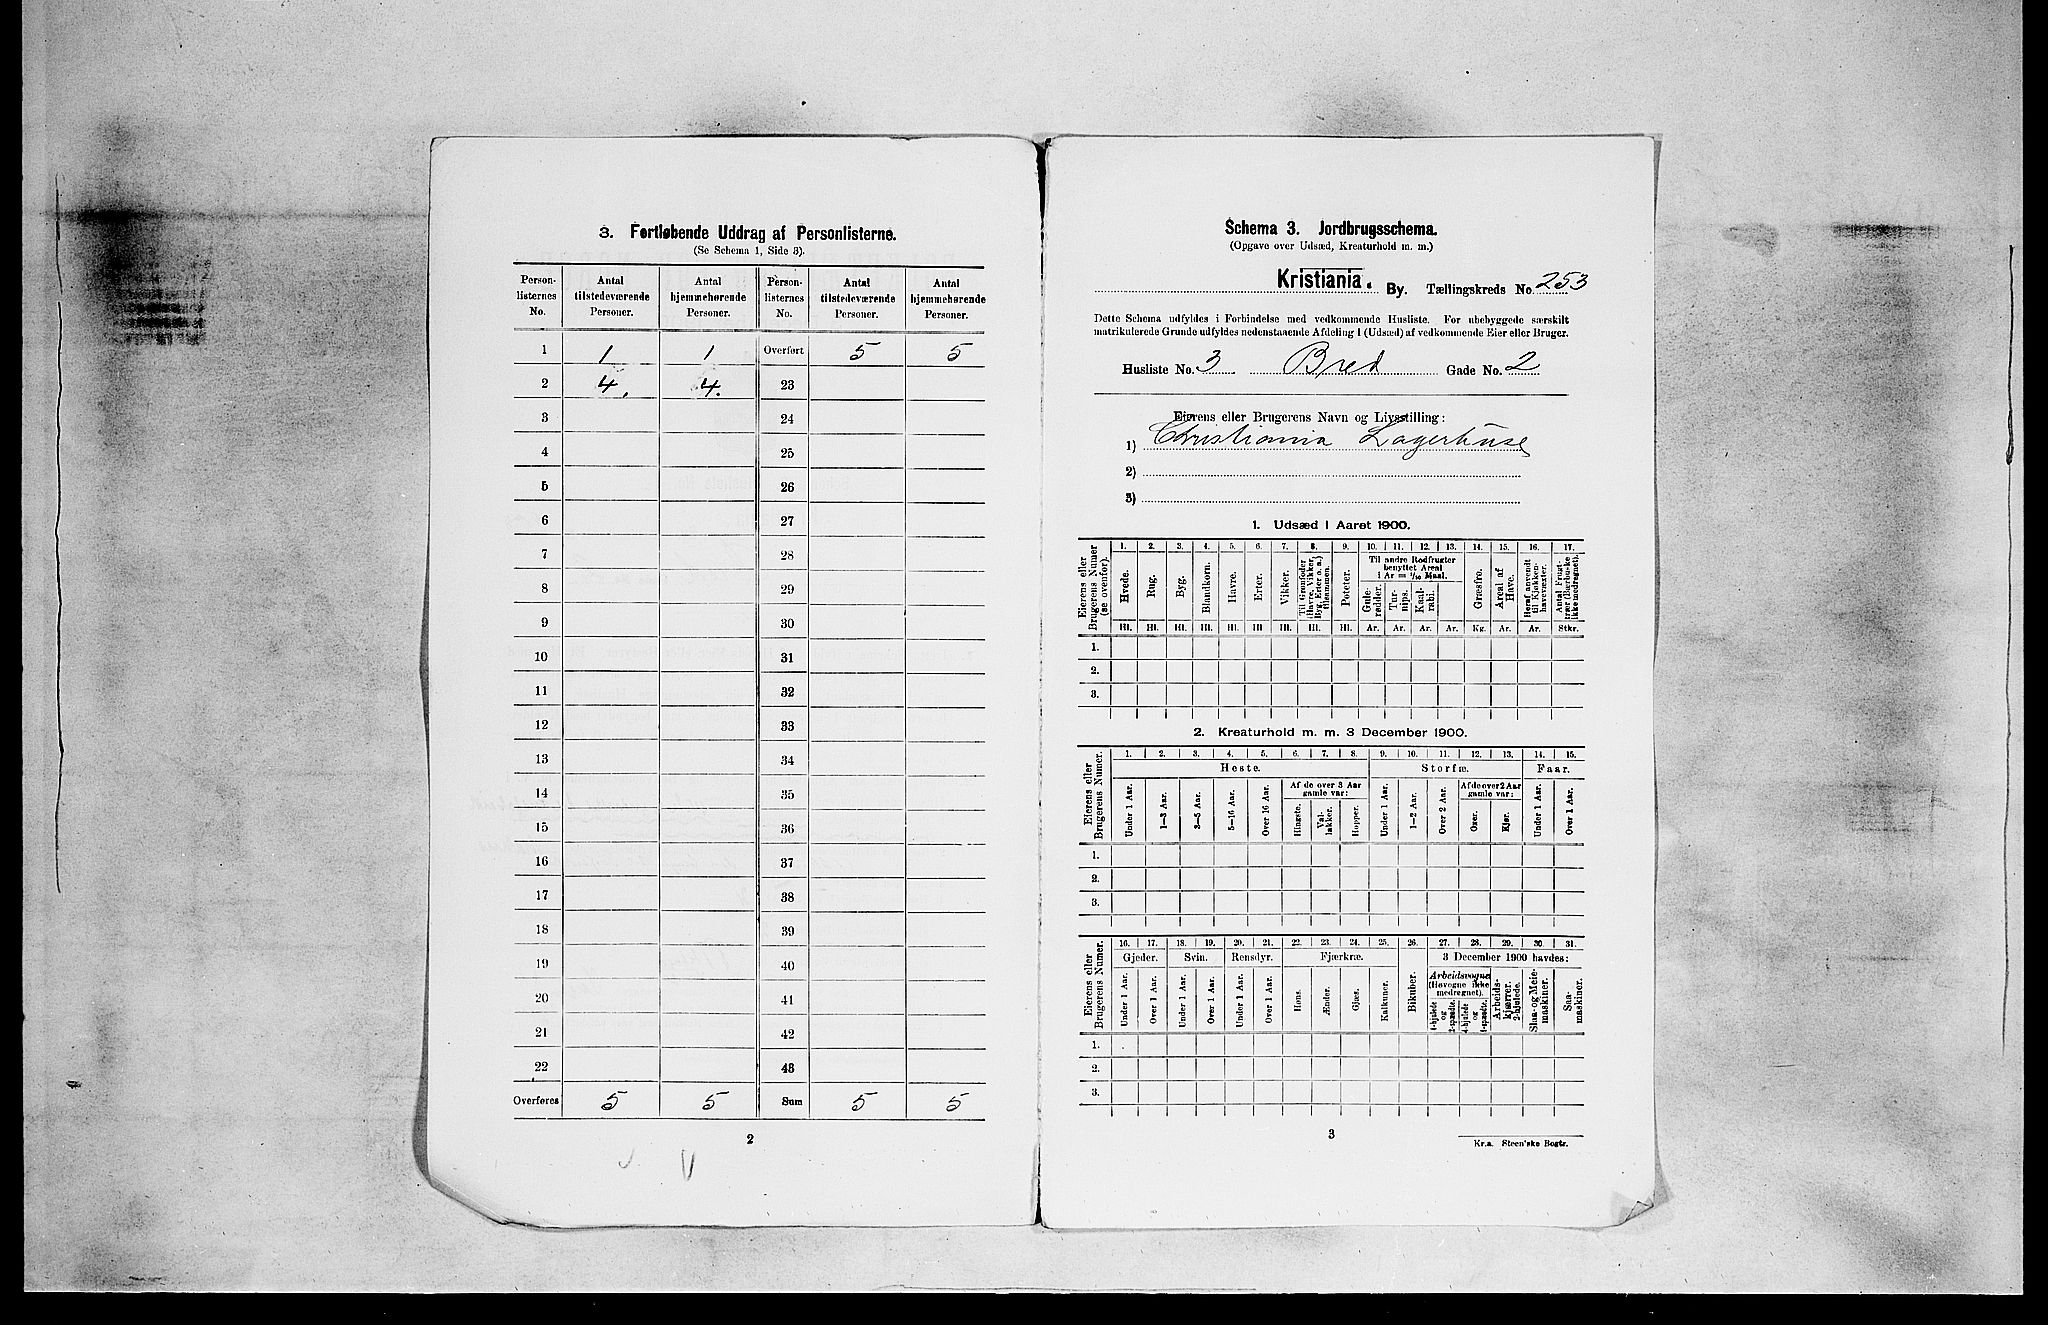 3. Fortløbende Uddrag af Personlisterne.
(Se Schema 1, Side 3).
Person-listernes No. | Antal tilstedeværende Personer. | Antal hjemmehørende Personer. | Person-listernes No. | Antal tilstedeværende Personer. | Antal hjemmehørende Personer.
1 | 1 | 1 | Overført | 5 | 5
2 | 4. | 4. | 23
3 | 24
4 | 25
5 | 26
6 | 27
7 | 28
8 | 29
9 | 30
10 | 31
11 | 32
12 | 33
13 | 34
14 | 35
15 | 36
16 | 37
17 | 38
18 | 39
19 | 40
20 | 41
21 | 42
22 | 43
Overføres | 5 | 5 | Sum | 5 | 5
2
Schema 3. Jordbrugsschema.
(Opgave over Udsæd, Kreaturhold m. m.)
Kristiania. By. Tællingskreds No. 253
Dette Schema udfyldes i Forbindelse med vedkommende Husliste. For ubebyggede særskilt
matrikulerede Grunde udfyldes nedenstaaende Afdeling 1 (Udsæd) af vedkommende Eier eller Bruger.
Husliste No. 3 Bred Gade No. 2
Eierens eller Brugerens Navn og Livsstilling:
1) Christiania Lagerhuse
2)
3)
1. Udsæd i Aaret 1900.
Eierens eller Brugerens Numer (se ovenfor). | 1. | 2. | 3. | 4. | 5. | 6. | 7. | 8. | 9. | 10. | 11. | 12. | 13. | 14. | 15. | 16. | 17.
Hvede. | Rug. | Byg. | Blandkorn. | Havre. | Erter. | Vikker. | Til Grønfoder (Havre, Vikker, Byg, Erter o. a.) tilsammen. | Poteter. | Til andre Rodfrugter benyttet Areal i Ar = 1/10 Maal. | Gule-rødder. | Tur-nips. | Kaal-rabi. | Græsfrø. | Areal af Have. | Heraf anvendt til Kjøkken-havevæxter. | Antal Frugt-trær (Bærbuske ikke medregnet).
Hl. | Hl. | Hl. | Hl. | Hl. | Hl | Hl. | Hl. | Hl. | Ar. | Ar. | Ar. | Ar. | Kg. | Ar. | Ar. | Stkr.
1.
2.
3.
2. Kreaturhold m. m. 3 December 1900.
Eierens eller Brugerens Numer. | 1. | 2. | 3. | 4. | 5. | 6. | 7. | 8. | 9. | 10. | 11. | 12. | 13. | 14. | 15.
Heste. | Storfæ. | Faar.
Af de over 3 Aar gamle var: | Af de over 2 Aar gamle var:
Under 1 Aar. | 1—3 Aar. | 3—5 Aar. | 5—16 Aar. | Over 16 Aar. | Hingste. | Val-lakker. | Hopper. | Under 1 Aar. | 1—2 Aar. | Over 2 Aar. | Oxer. | Kjør. | Under 1 Aar. | Over 1 Aar.
1.
2.
3.
Eierens eller Brugerens Numer. | 16. | 17. | 18. | 19. | 20. | 21. | 22. | 23. | 24. | 25. | 26. | 27. | 28. | 29. | 30. | 31.
Gjeder. | Svin. | Rensdyr. | Fjærkræ. | 3 December 1900 havdes:
Under 1 Aar. | Over 1 Aar. | Under 1 Aar. | Over 1 Aar. | Under 1 Aar. | Over 1 Aar. | Høns. | Ænder. | Gjæs. | Kalkuner. | Bikuber. | Arbeidsvogne (Høvogne ikke medregnet). | 4-hjulede og 2-spændte. | 4-hjulede og 1-spændte. | Arbeids-kjærrer, 2-hjulede. | Slaa- og Meie-maskiner. | Saa-maskiner.
1.
2.
3.
3
Kr.a. Steen'ske Bogtr.